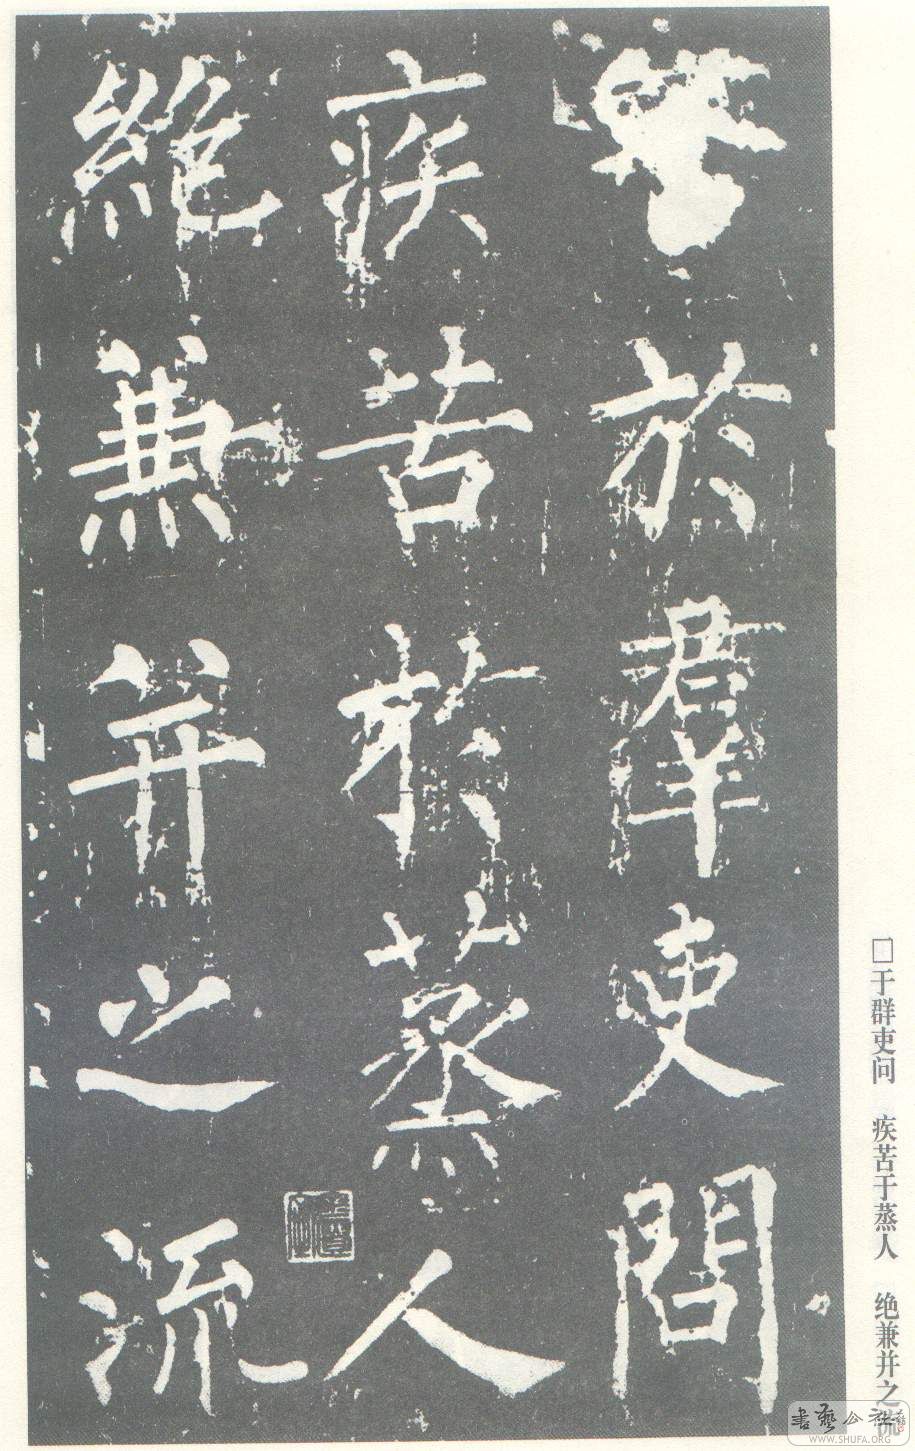 於羣吏問
疾苦於蒸人
絶兼并之流
□于群吏问 疾苦于蒸人 绝兼并之流
WWW.SHUFA.ORG